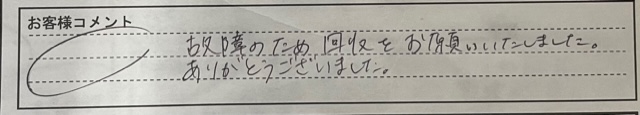 お客様コメント
故障のため回収をお願いいたしました。
ありがとうございました。